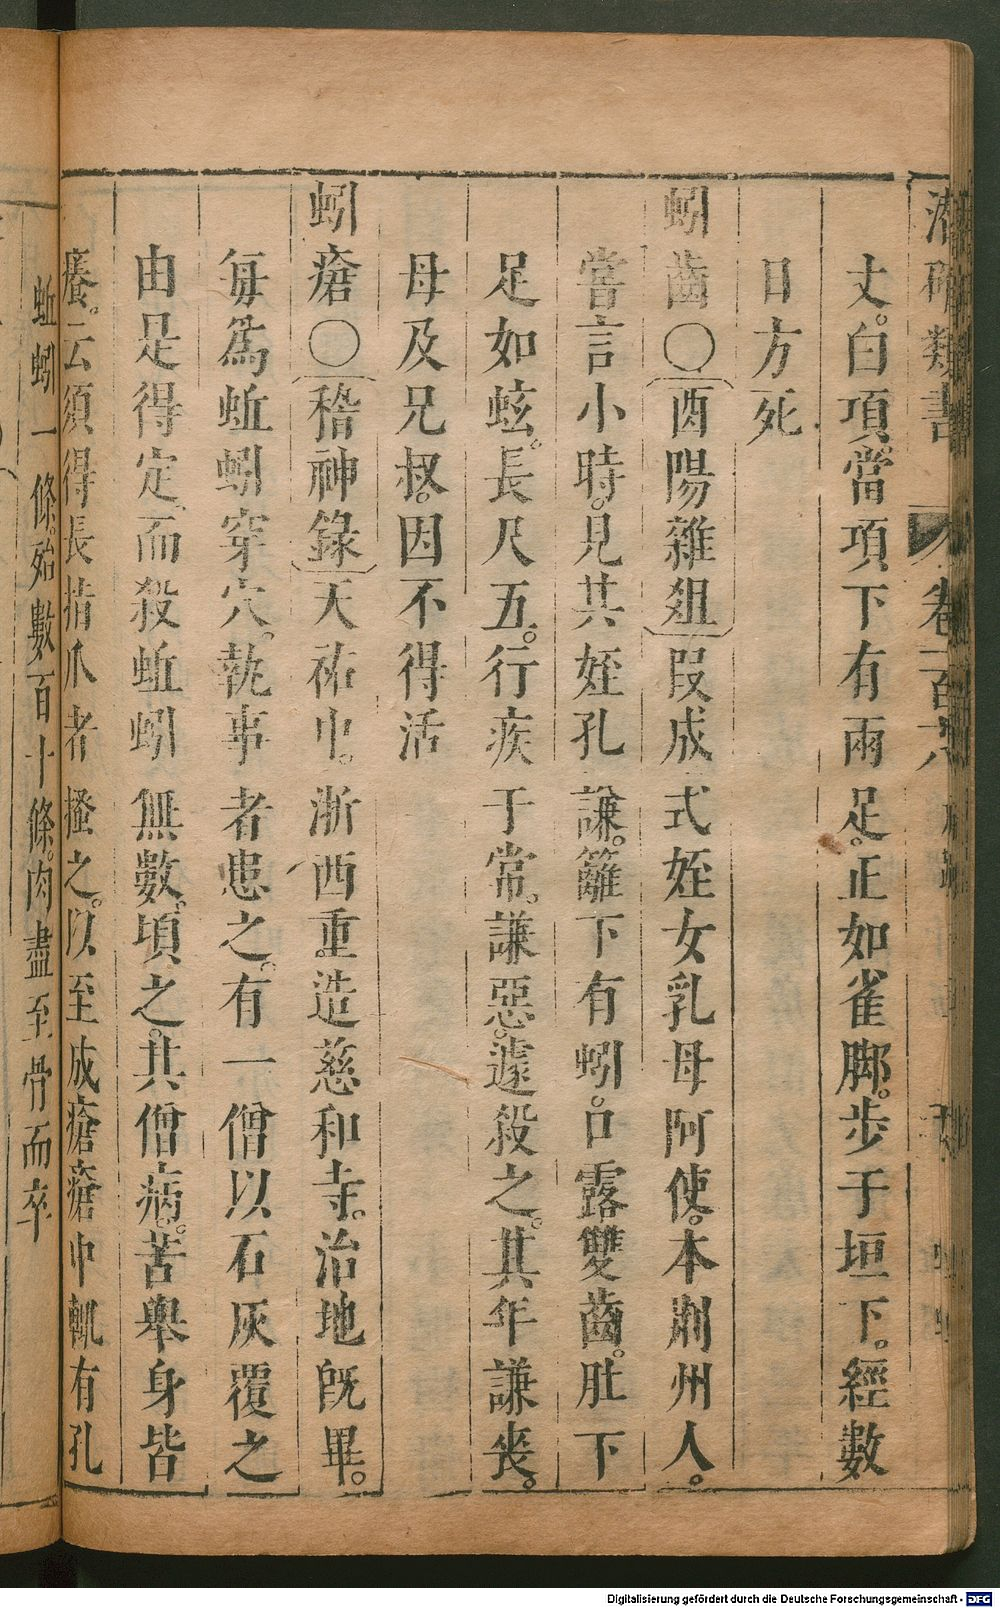 潛確類書 卷一百六
丈。白項。當項下有兩足。正如雀脚。步于垣下。經數
日方死
蚓齒〇酉陽雜俎 段成式姪女乳母阿使。本荆州人。
嘗言小時。見其姪孔謙。籬下有蚓。口露雙齒。肚下
足如蚿。長尺五。行疾于常。謙惡。遽殺之。其年謙喪
母及兄叔。因不得活
蚓瘡〇稽神錄 天祐中。浙西重造慈和寺。治地旣畢。
每爲蚯蚓穿穴。執事者患之。有一僧以石灰覆之
由是得定。而殺蚯蚓無數。頃之。其僧病。苦舉身皆
癢。云須得長指爪者搔之。以至成瘡瘡中輒有孔
蚯蚓一條。殆數百十條。肉盡至骨而卒
Digitalisierung gefördert durch die Deutsche Forschungsgemeinschaft - DFG